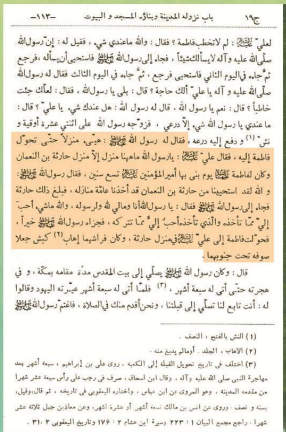 ج١٩ باب نزوله المدينة وبناؤه المسجد و البيوت -١١٣-
لعليّ ﷺ : لم لا تخطب فاطمة؟ فقال : والله ما عندي شيء ، فقيل له : إنّ رسول الله
صلّى الله عليه وآله لا يسألك شيئاً ، فجاء إلى رسول الله ﷺ فاستحيى أن يسأله ، فرجع
ثمّ جاءه في اليوم الثاني فاستحيى فرجع ، ثمّ جاءه في اليوم الثالث فقال له رسول الله
صلّى الله عليه وآله يا عليّ ألك حاجة؟ قال : بلى يا رسول الله ، فقال : لعلّك جئت
خاطباً؟ قال : نعم يا رسول الله ، قال له رسول الله : هل عندك شيء يا عليّ؟ قال :
ما عندي يا رسول الله شيء إلّا درعي ، فزوّجه رسول الله على اثنتي عشرة أوقية و
نشّ (١) و دفع إليه درعه ، فقال له رسول الله ﷺ : هيّىء منزلاً حتّى تحوّل
فاطمة إليه ، فقال عليّ ﷺ : يا رسول الله ما ههنا منزل إلّا منزل حارثة بن النعمان
وكان لفاطمة ﷺ يوم بنى بها أمير المؤمنين ﷺ تسع سنين ، فقال رسول الله ﷺ :
و الله لقد استحيينا من حارثة بن النعمان قد أخذنا عامّة منازله ، فبلغ ذلك حارثة
فجاء إلى رسول الله ﷺ فقال : يا رسول الله أنا ومالي لله ولرسوله ، والله ما شيء أحبّ
إليّ ممّا تأخذه والّذي تأخذه أحبّ إليّ ممّا تتركه ، فجزاه رسول الله ﷺ خيراً ،
فحوّلت فاطمة إلى عليّ ﷺ في منزل حارثة ، وكان فراشهما إهاب (٢) كبش جعلا
صوفه تحت جنوبهما .
قال : وكان رسول الله ﷺ يصلّي إلى بيت المقدس مدّة مقامه بمكّة ، و في
هجرته حتّى أتى له سبعة أشهر ، (٣) فلمّا أتى له سبعة أشهر عيّرته اليهود وقالوا
له : أنت تابع لنا تصلّي إلى قبلتنا ، ونحن أقدم منك في الصلاة ، فاغتمّ رسول الله ﷺ
(١) النش بالفتح ، النصف .
(٢) الاهاب ، الجلد . أو ما لم يدبغ منه .
(٣) اختلف في تاريخ تحويل القبلة إلى الكعبة ، روى علي بن إبراهيم ، سبعة أشهر بعد
مهاجرة النبي صلّى الله عليه وآله ، وقال ابن اسحاق ، صرف في رجب على رأس سبعة عشر شهرا
من مقدمه المدينة ، وهو المروى عن ابن عباس ، واختاره اليعقوبى في تاريخه ، ثم قال ، وقيل ،
بسنة و نصف . وروى عن أنس بن مالك تسعة أشهر ، أو عشرة أشهر ، وعن معاذ بن جبل ثلاثة عشر
شهرا ، راجع مجمع البيان ١ : ٢٢٣ وسيرة ابن هشام ٢ : ١٧٦ وتاريخ اليعقوبى ٢ : ٣١ .